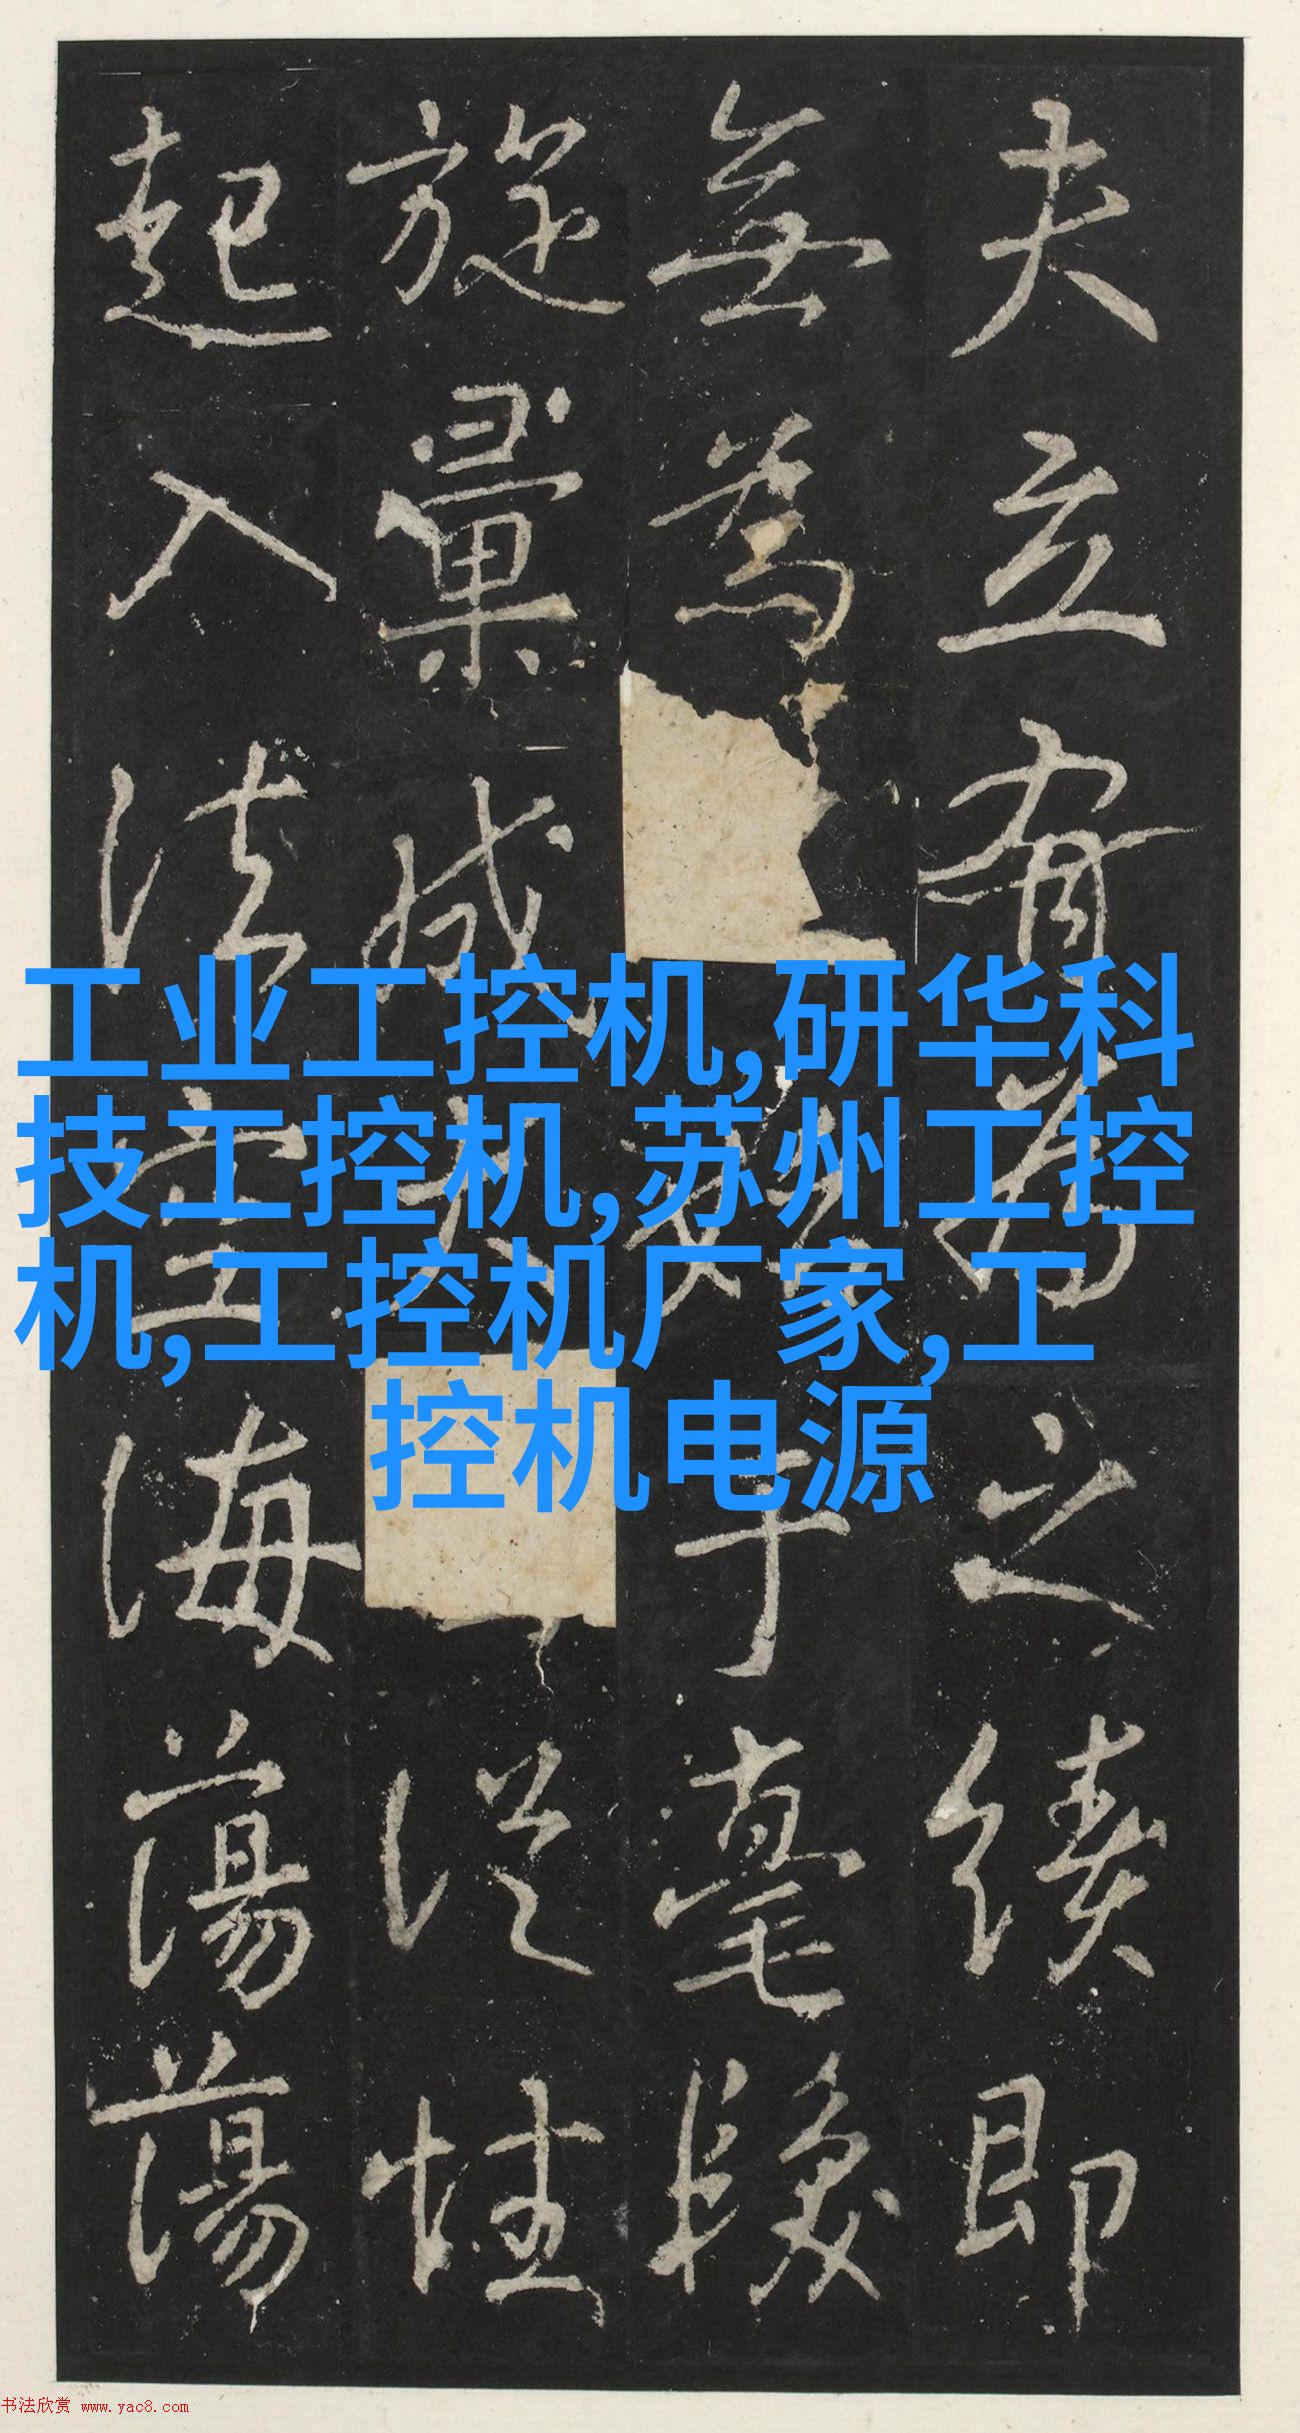 夫立有為之續即
無為于毫
旋彙成從性
起入法空海蕩蕩
工业工控机,研华科
技工控机,苏州工控
机,工控机厂家,工
控机电源
书法欣赏 www.yac8.com